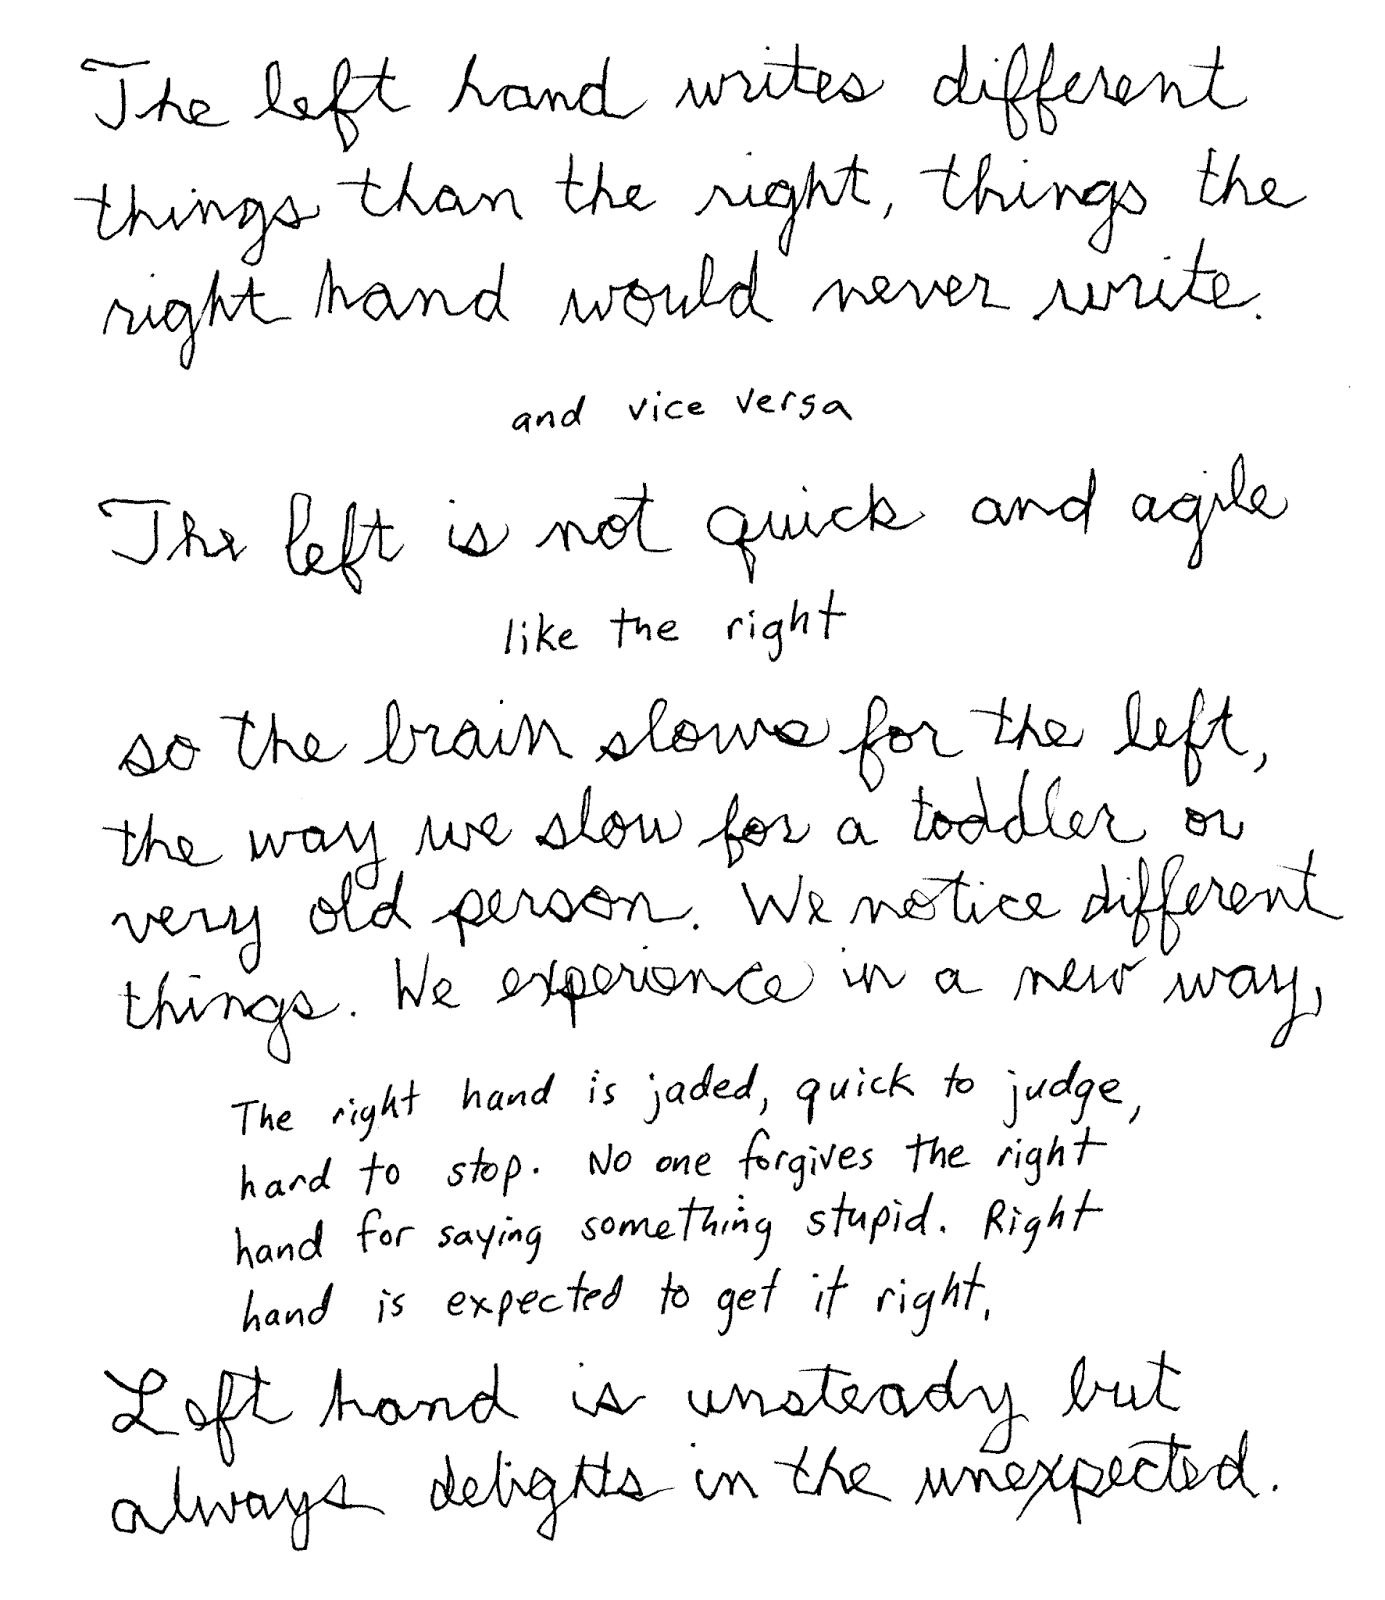 The left hand writes different
things than the right, things the
right hand would never write.
and vice versa
The left is not quick and agile
like the right
so the brain slows for the left,
the way we slow for a toddler or
very old person. We notice different
things. We experience in a new way,
The right hand is jaded, quick to judge,
hard to stop. No one forgives the right
hand for saying something stupid. Right
hand is expected to get it right.
Left hand is unsteady but
always delights in the unexpected.